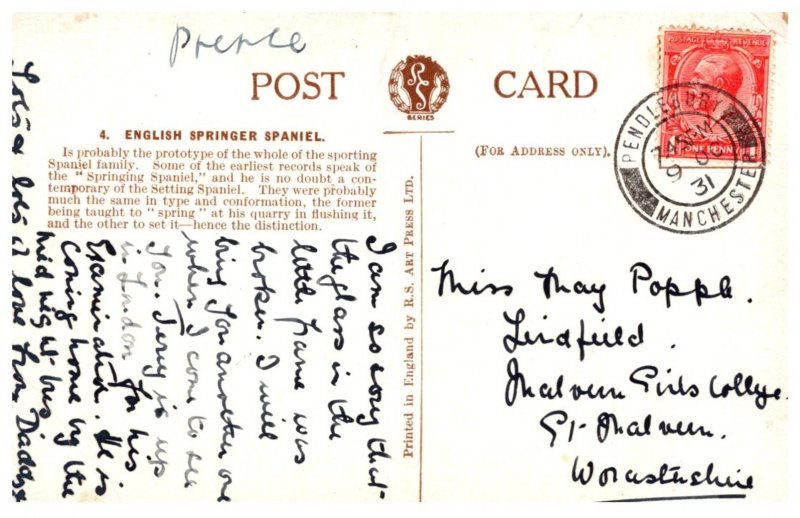 Prence
POST CARD
SERIES
POSTAGE REVENUE
ONE PENNY
PENDLEBURY
MANCHESTER
31
4. ENGLISH SPRINGER SPANIEL.
Is probably the prototype of the whole of the sporting
Spaniel family. Some of the earliest records speak of
the "Springing Spaniel," and he is no doubt a con-
temporary of the Setting Spaniel. They were probably
much the same in type and conformation, the former
being taught to "spring" at his quarry in flushing it,
and the other to set it—hence the distinction.
(FOR ADDRESS ONLY).
Printed in England by R.S. ART PRESS LTD.
I am so sorry that
the glass in the
little frame was
broken. I will
bring you another one
when I come to see
you. Terry is up
in London for his
Examination. He is
coming home by the
midnight bus
Lots & lots of love from Daddy
Miss May Popple.
Lindfield.
Malvern Girls College.
Gt. Malvern.
Worcestershire